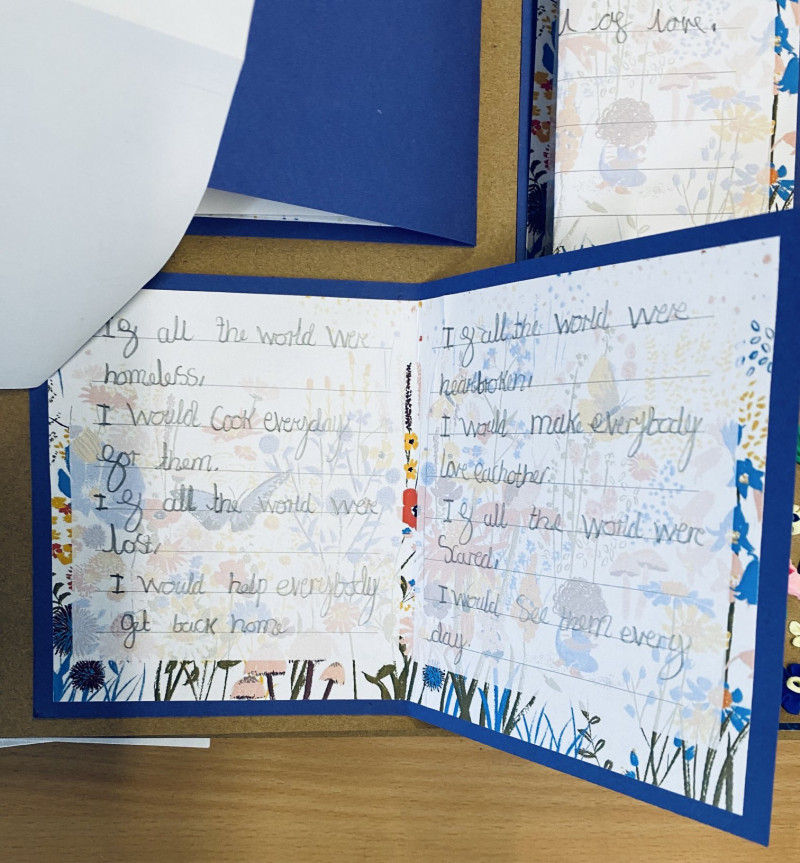 l of love.
If all the world were
homeless,
I would cook everyday
for them.
If all the world were
lost,
I would help everybody
get back home
If all the world were
heartbroken,
I would make everybody
love eachother.
If all the world were
Scared,
I would see them every
day.